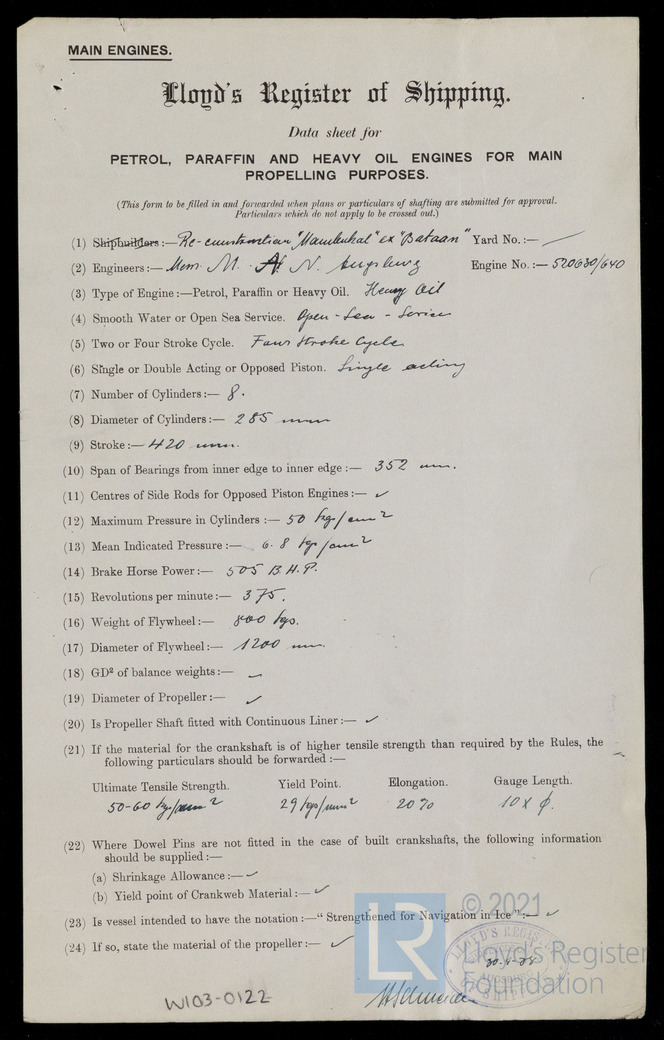 MAIN ENGINES.
Lloyd's Register of Shipping.
Data sheet for
PETROL, PARAFFIN AND HEAVY OIL ENGINES FOR MAIN
PROPELLING PURPOSES.
(This form to be filled in and forwarded when plans or particulars of shafting are submitted for approval.
Particulars which do not apply to be crossed out.)
(1) Shipbuilders:— "Bataan" Yard No.:—
(2) Engineers:— Messrs. M. A. N. Augsburg Engine No.:— 520630/640
(3) Type of Engine:—Petrol, Paraffin or Heavy Oil. Heavy Oil
(4) Smooth Water or Open Sea Service. Open-Sea-Service
(5) Two or Four Stroke Cycle. Four Stroke Cycle
(6) Single or Double Acting or Opposed Piston. Single acting
(7) Number of Cylinders:— 8.
(8) Diameter of Cylinders:— 285 mm
(9) Stroke:— 420 mm.
(10) Span of Bearings from inner edge to inner edge:— 352 mm.
(11) Centres of Side Rods for Opposed Piston Engines:— ✓
(12) Maximum Pressure in Cylinders:— 50 kgs/cm2
(13) Mean Indicated Pressure:— 6.8 kgs/cm2
(14) Brake Horse Power:— 505 B.H.P.
(15) Revolutions per minute:— 375.
(16) Weight of Flywheel:— 800 kgs.
(17) Diameter of Flywheel:— 1200 mm.
(18) GD² of balance weights:— ✓
(19) Diameter of Propeller:— ✓
(20) Is Propeller Shaft fitted with Continuous Liner:— ✓
(21) If the material for the crankshaft is of higher tensile strength than required by the Rules, the
following particulars should be forwarded:—
Ultimate Tensile Strength. Yield Point. Elongation. Gauge Length.
50-60 kgs/mm2 29 kgs/mm2 20% 10 x φ.
(22) Where Dowel Pins are not fitted in the case of built crankshafts, the following information
should be supplied:—
(a) Shrinkage Allowance:— ✓
(b) Yield point of Crankweb Material:— ✓
(23) Is vessel intended to have the notation:—"Strengthened for Navigation in Ice":— ✓
(24) If so, state the material of the propeller:— ✓
© 2021
LR
Lloyd's Register
Foundation
W103-0122